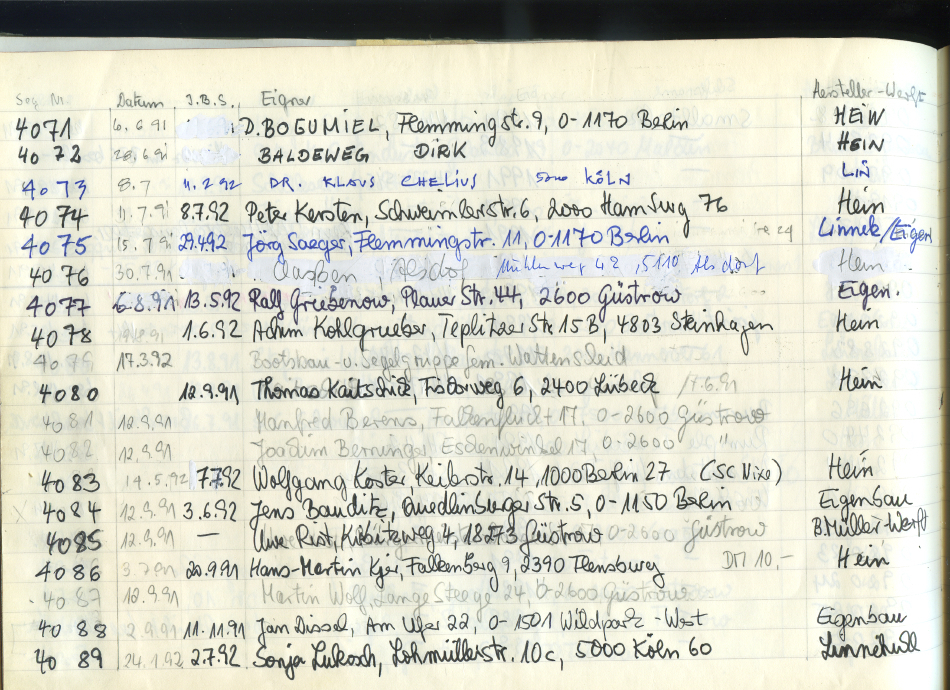 Seg. Nr. Datum J.B.S. Eigner Hersteller-Werft
4071 6.6.91 D. BOGUMIEL, Flemmingstr. 9, O-1170 Berlin HEIN
4072 BALDEWEG DIRK HEIN
4073 8.7 11.2.92 DR. KLAUS CHELIUS 5000 KÖLN LIN
4074 8.7.92 Peter Kersten, Schweimlerstr. 6, 2000 Hamburg 76 Hein
4075 15.7.91 29.4.92 Jörg Saeger, Flemmingstr. 11, O-1170 Berlin Linnek/Eigen
4076 30.7.91 Mühlenweg 42, 5110 Alsdorf Hein
4077 6.8.91 13.5.92 Ralf Griebenow, Plauer Str. 44, 2600 Güstrow Eigen.
4078 1.6.92 Achim Kohlgrueber, Teplitzer Str. 15B, 4803 Steinhagen Hein
4079 17.3.92 Bootsbau- u. Segelgruppe Gem. Wattenscheid
4080 12.9.91 Thomas Kaitschick, 6, 2400 Lübeck 17.6.91 Hein
4081 12.9.91 Manfred Berens, 17, O-2600 Güstrow
4082 12.9.91 Joachim Berringer 17, O-2600 "
4083 14.5.92 7.7.92 Wolfgang Koster Keiberstr. 14, 1000 Berlin 27 (SC Nixe) Hein
4084 12.9.91 3.6.92 Jens Banditz, Quedlinburger Str. 5, O-1150 Berlin Eigenbau
4085 12.9.91 — Uwe Rist, Kiebitzweg 4, 18273 Güstrow O-2600 Güstrow B. Müller-Werft
4086 3.7.91 20.9.91 Hans-Martin Kjer, Falkenberg 9, 2390 Flensburg DM 10,- Hein
4087 12.9.91 Martin Wolf, Lange Stege 24, O-2600 Güstrow
4088 2.9.91 11.11.91 Jan Dissel, Am Ufer 22, O-1501 Wildpark-West Eigenbau
4089 24.1.92 2.7.92 Sonja Lukosch, Lohmüllerstr. 10c, 5000 Köln 60